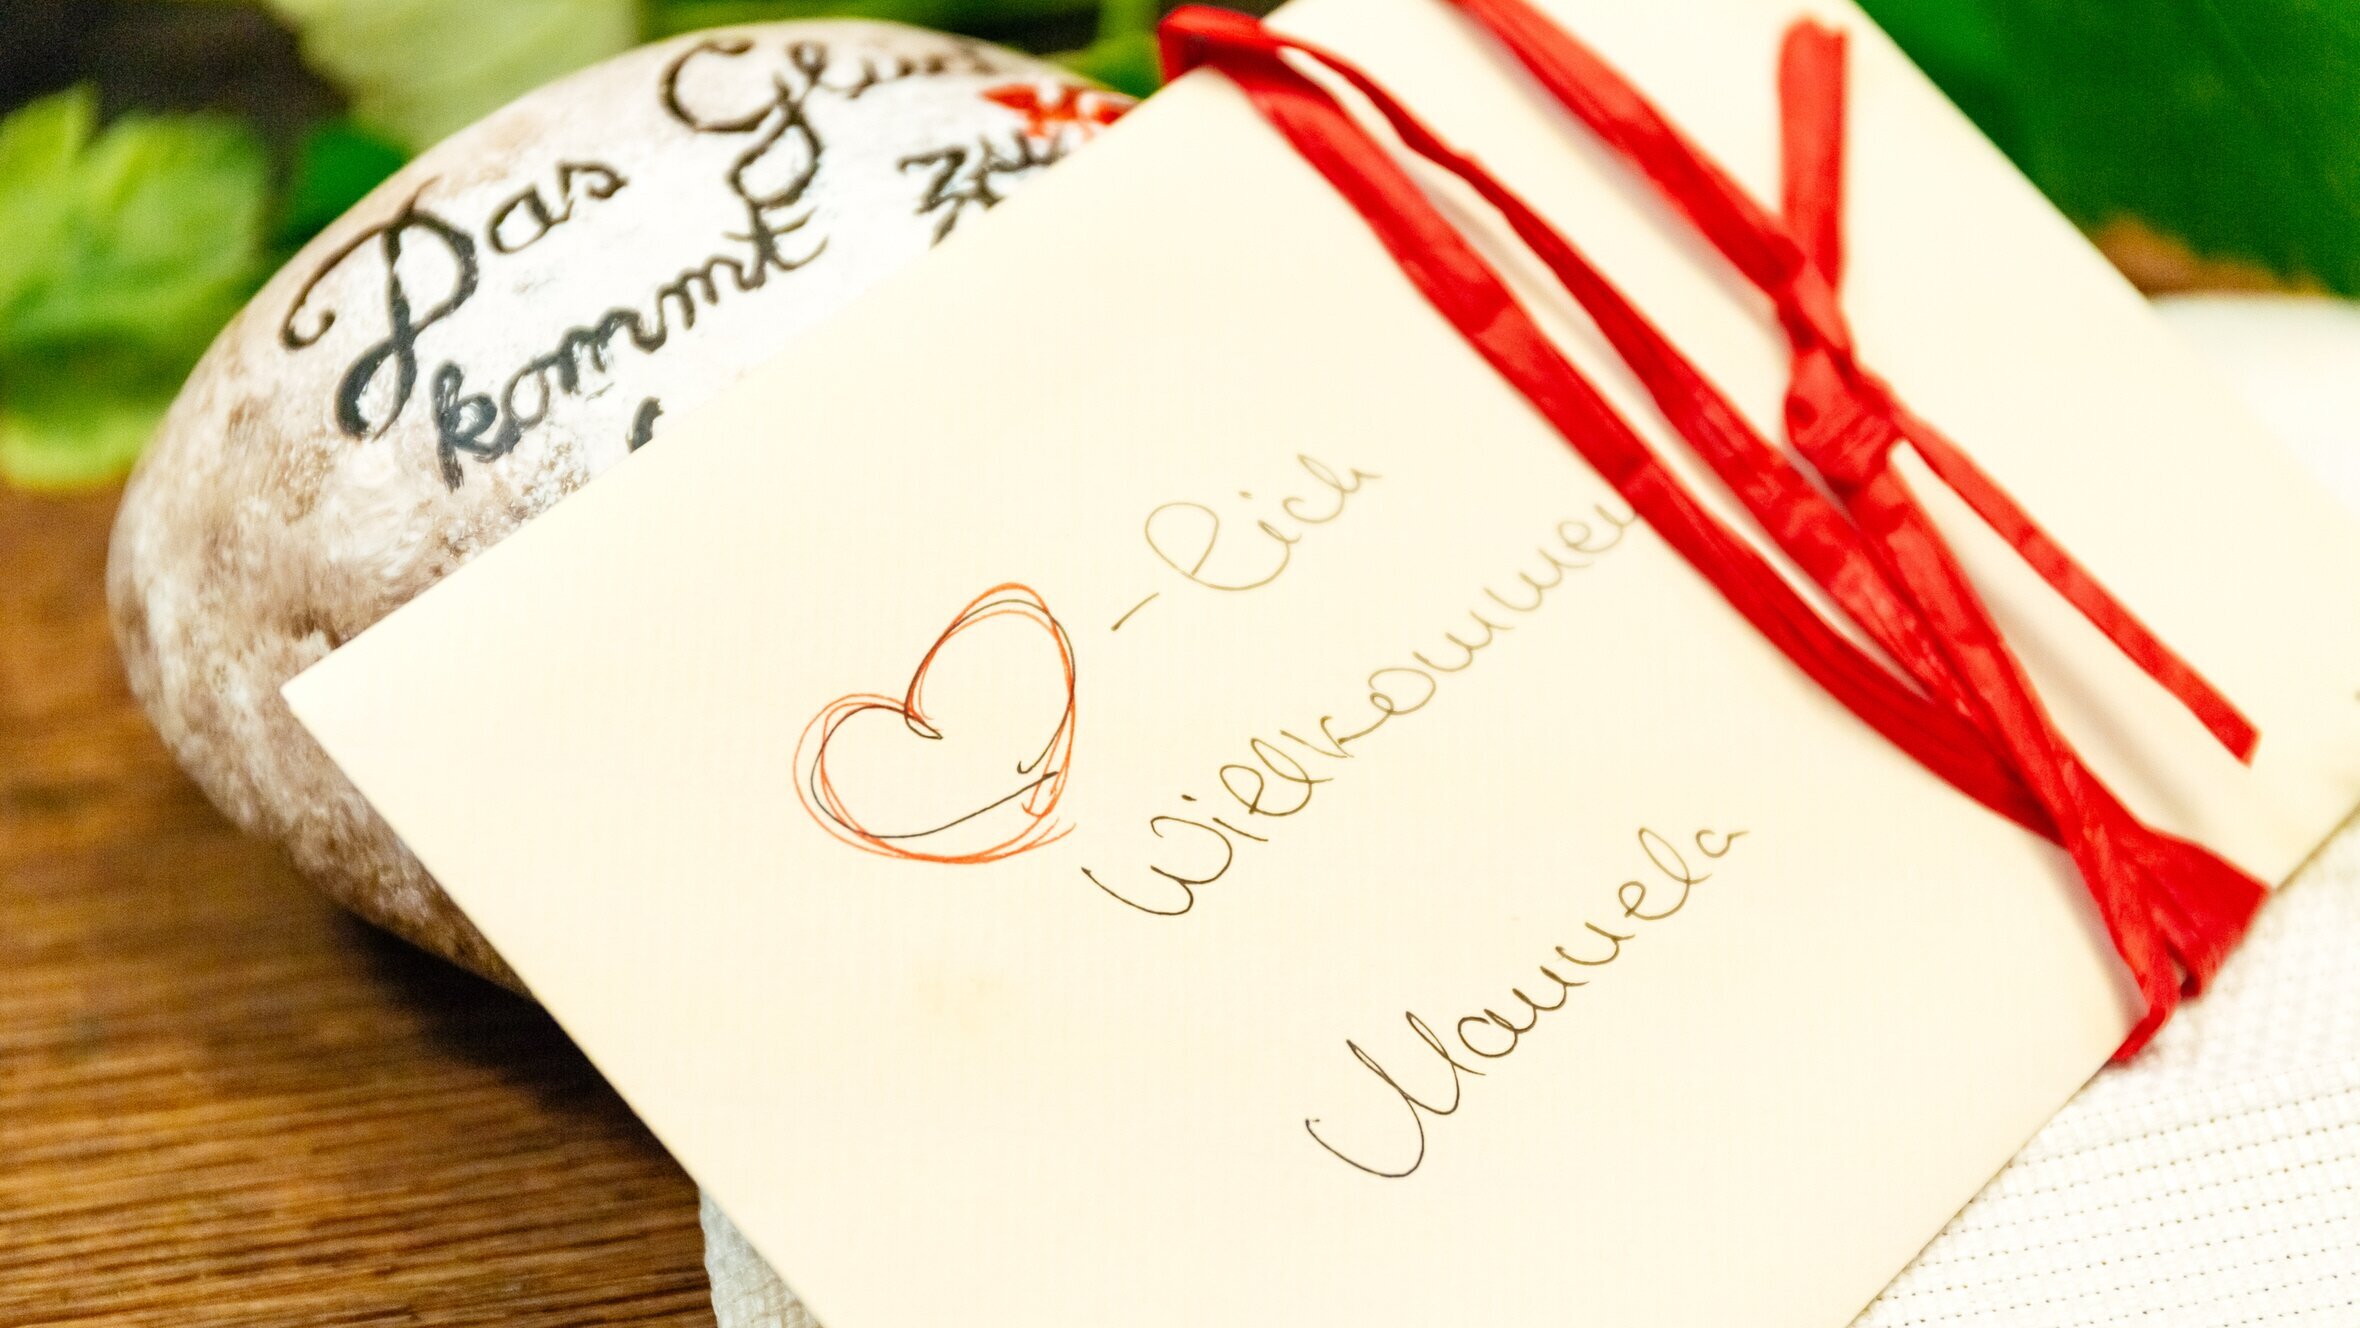 Das
kommt
zu
-lich
Willkommen
Manuela